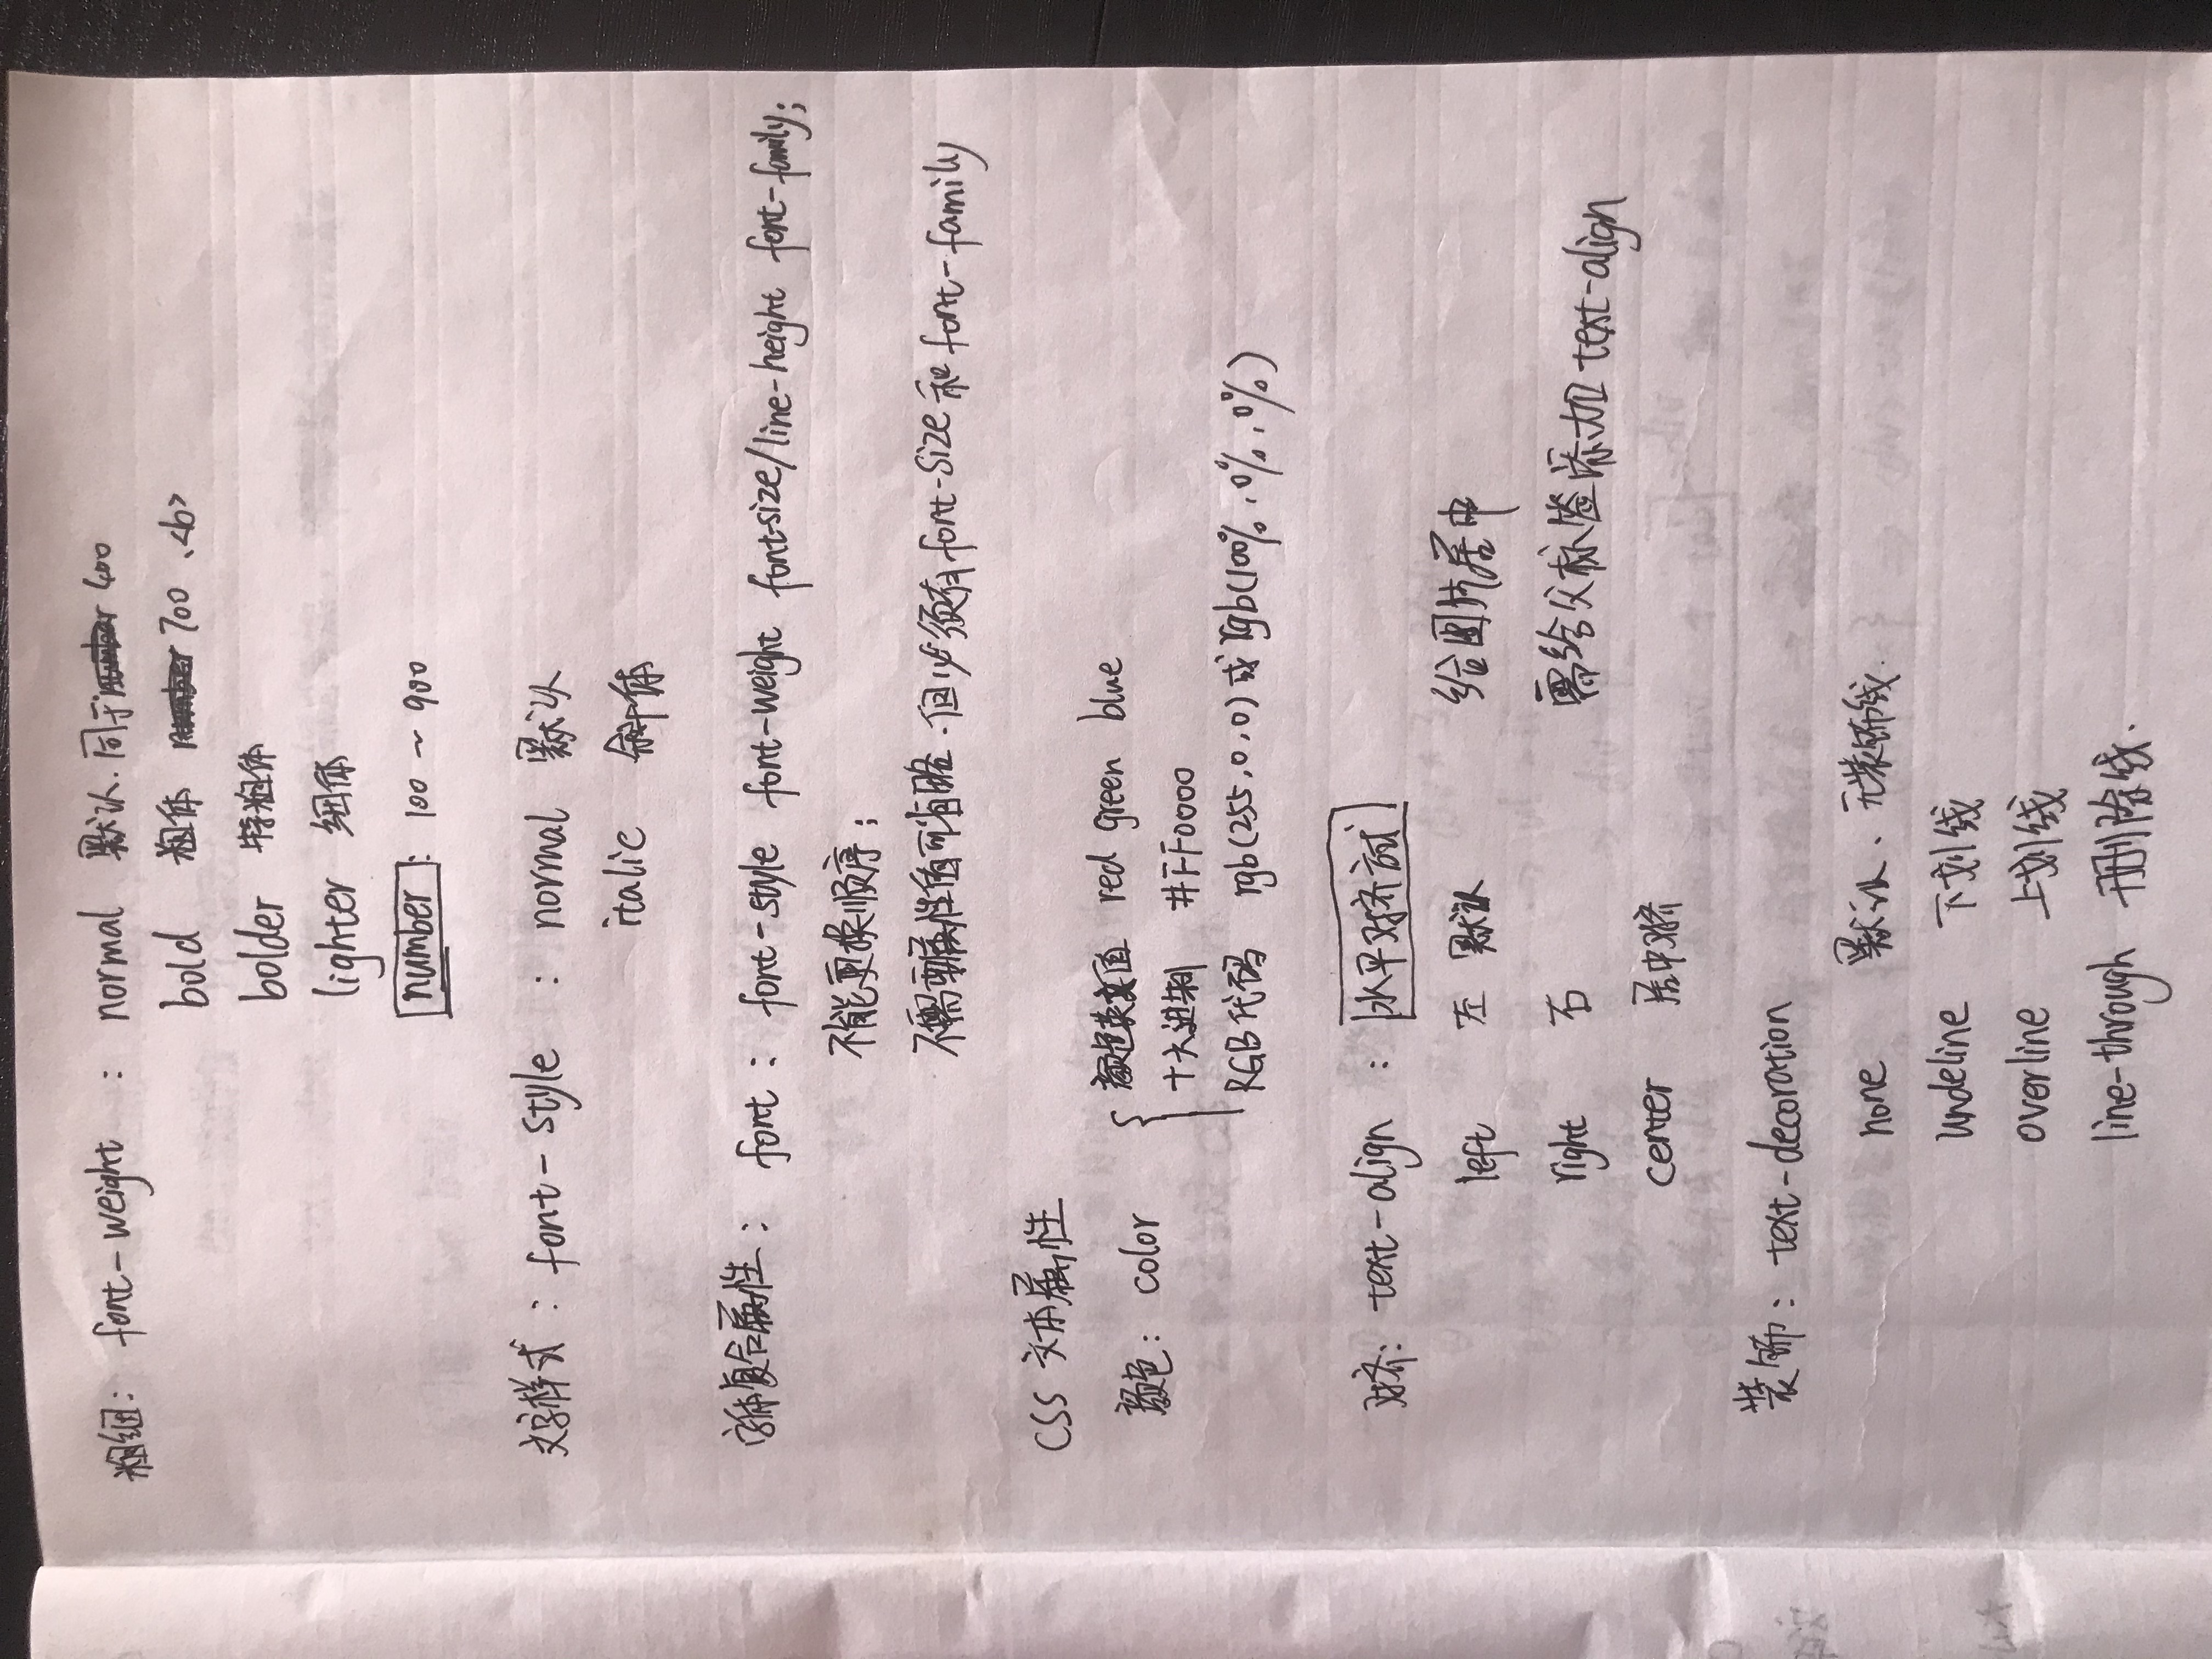 粗细: font-weight : normal 默认.同于 400
bold 粗体 700 、<b>
bolder 特粗体
lighter 细体
number: 100 ~ 900
文字样式: font-style : normal 默认
italic 斜体
字体复合属性: font: font-style font-weight font-size/line-height font-family;
不能更换顺序;
不需要属性值可省略.但必须有font-size和font-family
CSS 文本属性
颜色: color { 颜色英文值 red green blue
十六进制 #FF0000
RGB代码 rgb(255,0,0)或rgb(100%,0%,0%)
对齐: text-align : 水平对齐方式
left 左 默认 给图片居中
right 右 需给父标签添加text-align
center 居中对齐
装饰: text-decoration
none 默认、无装饰线.
undeline 下划线
overline 上划线
line-through 删除线.